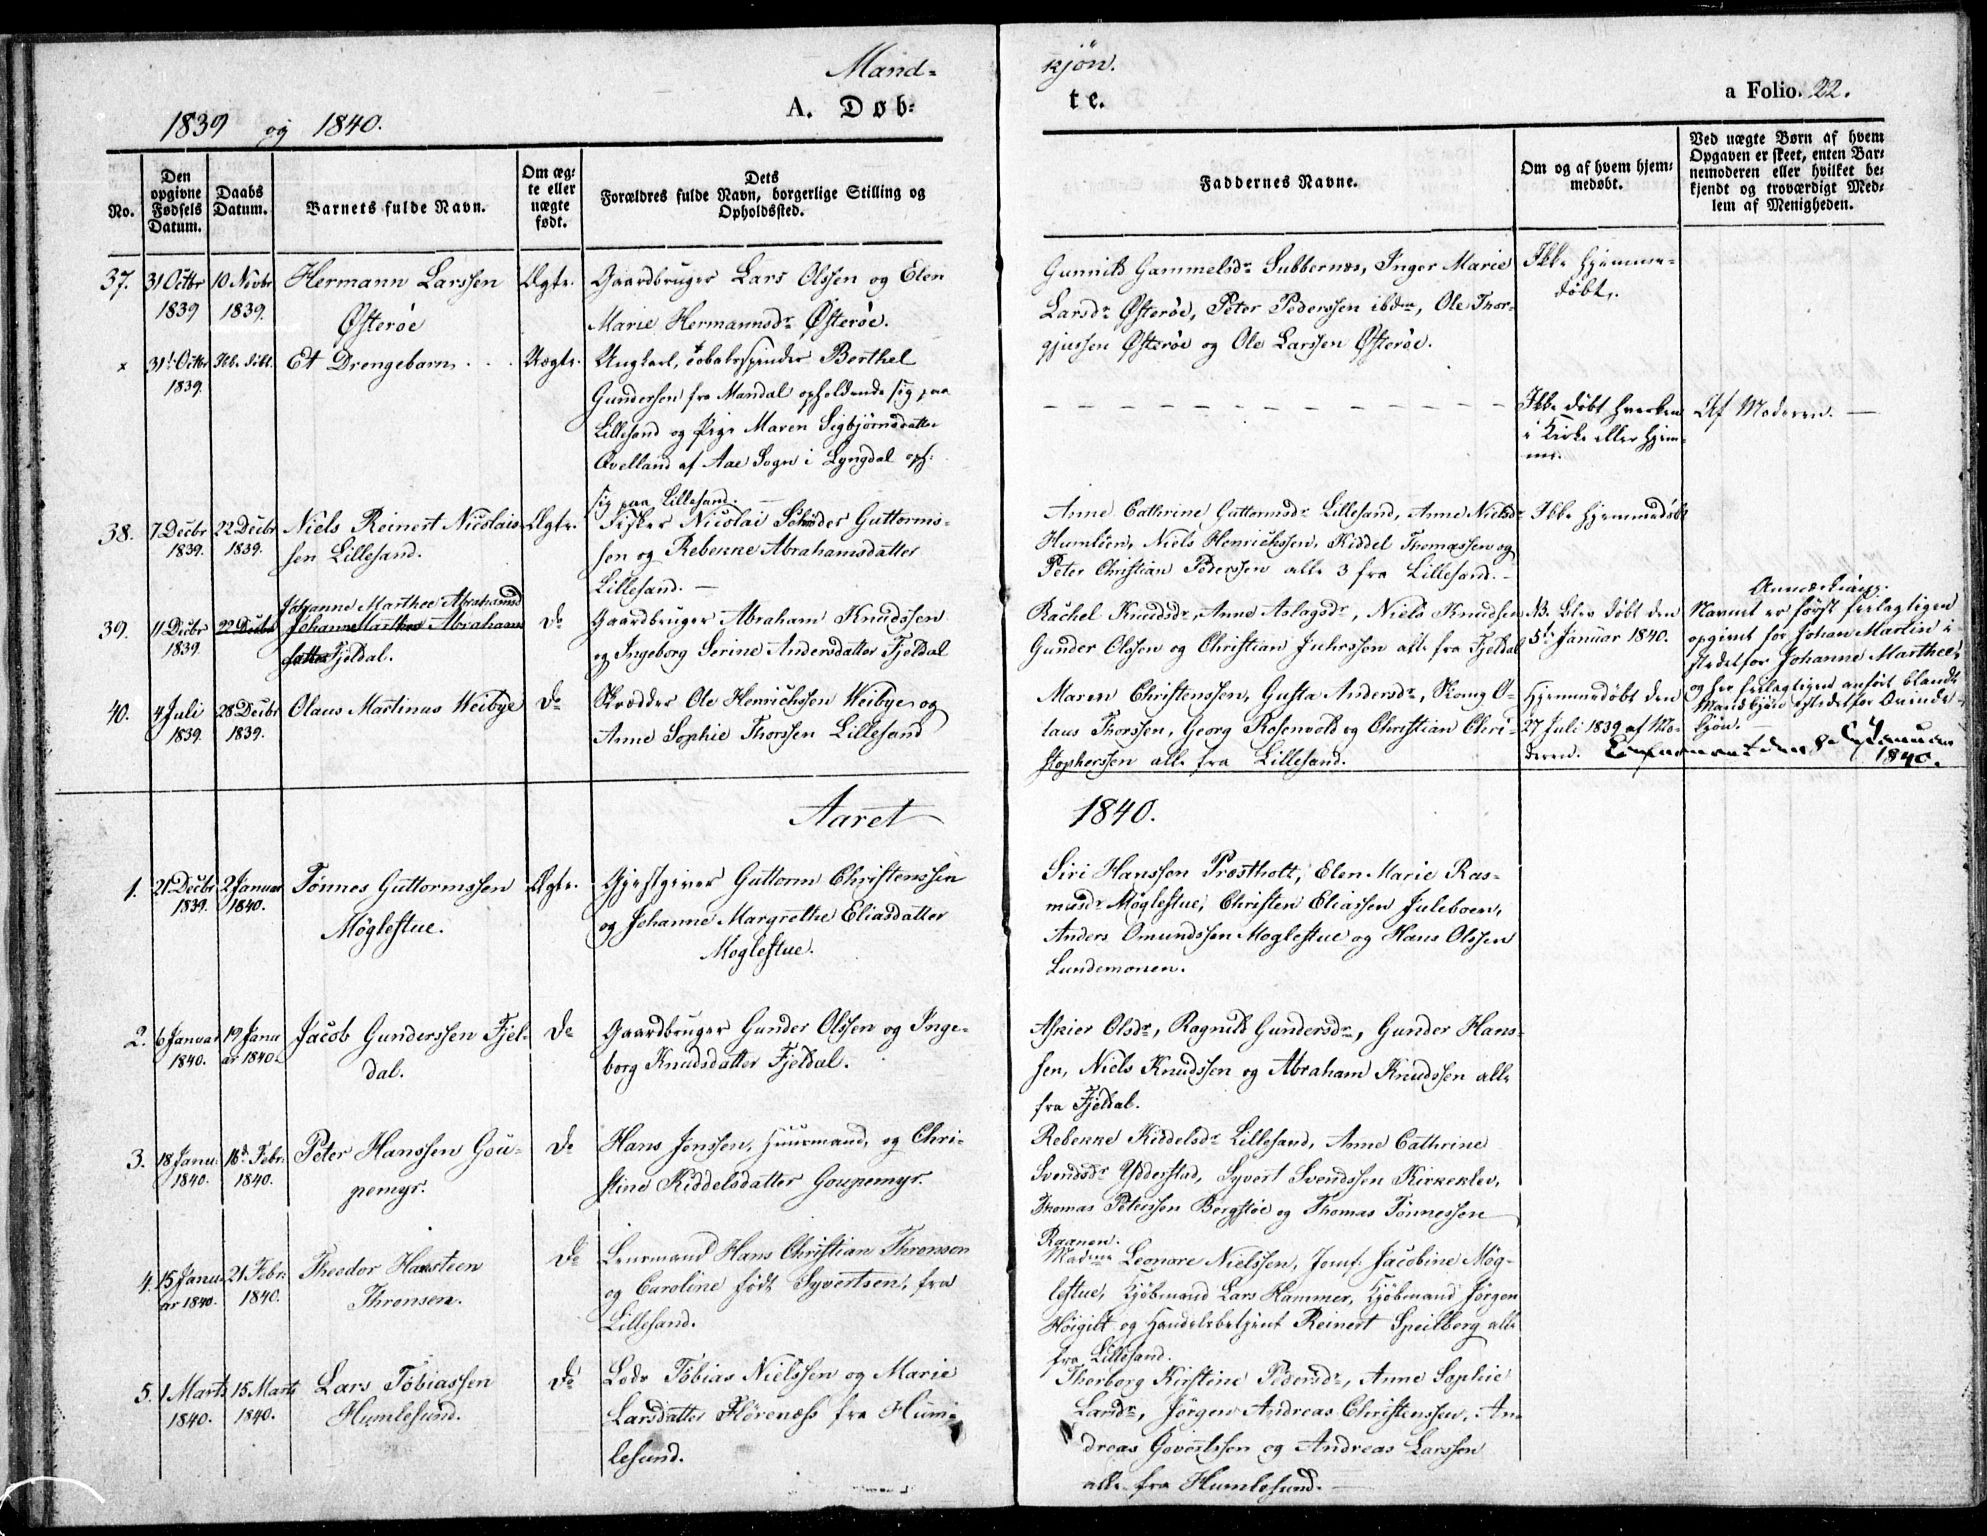 Mand-
kjøn.
A. Døb-
te.
a Folio. 22.
1839 og 1840.
No.
Den
opgivne
Fødsels
Datum.
Daabs
Datum.
Barnets fulde Navn.
Om æg-
te eller
uægte
født.
Dets
Forældres fulde Navn, borgerlige Stilling og
Opholdssted.
Faddernes Navne.
Om og af hvem hjem-
medøbt.
Ved uægte Børn af hvem
Opgaven er skeet, enten Bar-
nemoderen eller hvilket be-
kjendt og troværdigt Med-
lem af Menigheden.
37.
31 Octbr
1839
10 Novbr
1839.
Hermann Larssen
Østerøe
Ægte.
Gaardbruger Lars Olssen og Elen
Marie Hermannsdr Østerøe.
Gunnild Gammelsdr Subbernæs, Inger Marie
Larsdr Østerøe, Peter Pederssen ibdm, Ole Thor-
gjussen Østerøe og Ole Larssen Østerøe.
Ikke hjemme-
døbt.
x
31 Octbr
1839.
Ikke døbt.
Et Drengebarn
Uægte.
Ungkarl, Tobaksspinder Berthel
Gundersen fra Mandal opholdende sig paa
Lillesand og Pige Maren Sigbjørnsdatter
Qvelland af Aae Sogn i Lyngdal oph:
sig paa Lillesand.
Ikke døbt hverken
i Kirke eller hjem-
me.
Af Moderen.
38.
7 Decbr
1839.
22 Decbr
1839.
Niels Reinert Nicolais-
sen Lillesand.
Ægte.
Fisker Nicolai Schrøder Guttorms-
sen og Rebekke Abrahamsdatter
Lillesand.
Anne Cathrine Guttormsdr Lillesand, Anne Nielsdr
Humlöen, Niels Henrichssen, Kiddel Thomassen og
Peter Christian Pederssen alle 3 fra Lillesand.
Ikke hjemmedøbt
39.
11 Decbr
1839.
22 Decbr
Johanne Marthea Abrahamsd
Johanne Marthea Abrahams
datter Fjeldal.
do
Gaardbruger Abraham Knudssen
og Ingeborg Serine Andersdatter Fjeldal
Rachel Knudsdr, Anne Aslagsdr, Niels Knudsen
Gunder Olssen og Christian Juhrssen alle fra Fjeldal
NB. blev døbt den
5te Januar 1840.
Anmærkning.
Navnet er først feilagtigen
opgivet for Johan Martin i-
stedetfor Johanne Marthea
og her feilagtigen anført blandt
Mandkjøn istedetfor Qvinde-
kjøn.
40.
4 Juli
1839.
28 Decbr
1839.
Olaus Martinus Weibye
do
Skrædder Ole Henrichssen Weibye og
Anne Sophie Thorssen Lillesand
Maren Christenssen, Gusta Andersdr, Skomg O-
laus Thorssen, Georg Rosenvold og Christian Chri-
stopherssen alle fra Lillesand.
Hjemmedøbt den
27 Juli 1839 af Mo-
deren.
1840.
Aaret
1840.
1.
21 Decbr
1839.
2 Januar
1840.
Tønnes Guttormssen
Møglestue.
Ægte.
Gjestgiver Guttorm Christenssen
og Johanne Margrethe Eliasdatter
Moglestue.
Siri Hanssen Prestholt, Elen Marie Ras-
musdr Møglestue, Christen Eliassen Juleboen,
Anders Omundssen Moglestue og Hans Olssen
Lundemonen.
2.
6 Januar
1840.
19 Janu
ar 1840.
Jacob Gunderssen Fjel-
dal.
do
Gaardbruger Gunder Olssen og Inge-
borg Knudsdatter Fjeldal.
Aspier Olsdr, Ragnild Gundersdr, Gunder Hans-
sen, Niels Knudssen og Abraham Knudssen alle
fra Fjeldal.
3.
18 Janu.
1840.
16d Febr.
1840.
Peter Hanssen Gou-
pemyr.
do
Hans Jenssen, Huusmand, og Chri-
stine Kiddelsdatter Goupemyr.
Rebekke Kiddelsdr Lillesand, Anne Cathrine
Svendsdr Ydderstad, Syvert Svendssen Kirkeklev,
Thomas Peterssen Bergstøe og Thomas Tønnessen
Raanen.
4.
15 Janu
ar 1840.
21 Febr.
1840.
Theodor Hansteen
Thronsen.
do
Leensmand Hans Christian Thronsen
og Caroline født Syvertsen, fra
Lillesand.
Madme Leonore Nielssen, Jomf. Jacobine Møg-
lestue, Kjøbmand Lars Hammer, Kjøbmand Jørgen
Høigilt og Handelsbetjent Reinert Speilberg alle
fra Lillesand.
5.
1 Marts
1840.
15 Marts
1840.
Lars Tobiassen
Humlesund.
do
Lods Tobias Nielssen og Marie
Larsdatter Flørenæss fra Hum-
lesund.
Thorborg Kirstine Pedersdr, Anne Sophie
Larsdr, Jørgen Andreas Christenssen, An-
dreas Govertssen og Andreas Larssen
alle fra Humlesund.